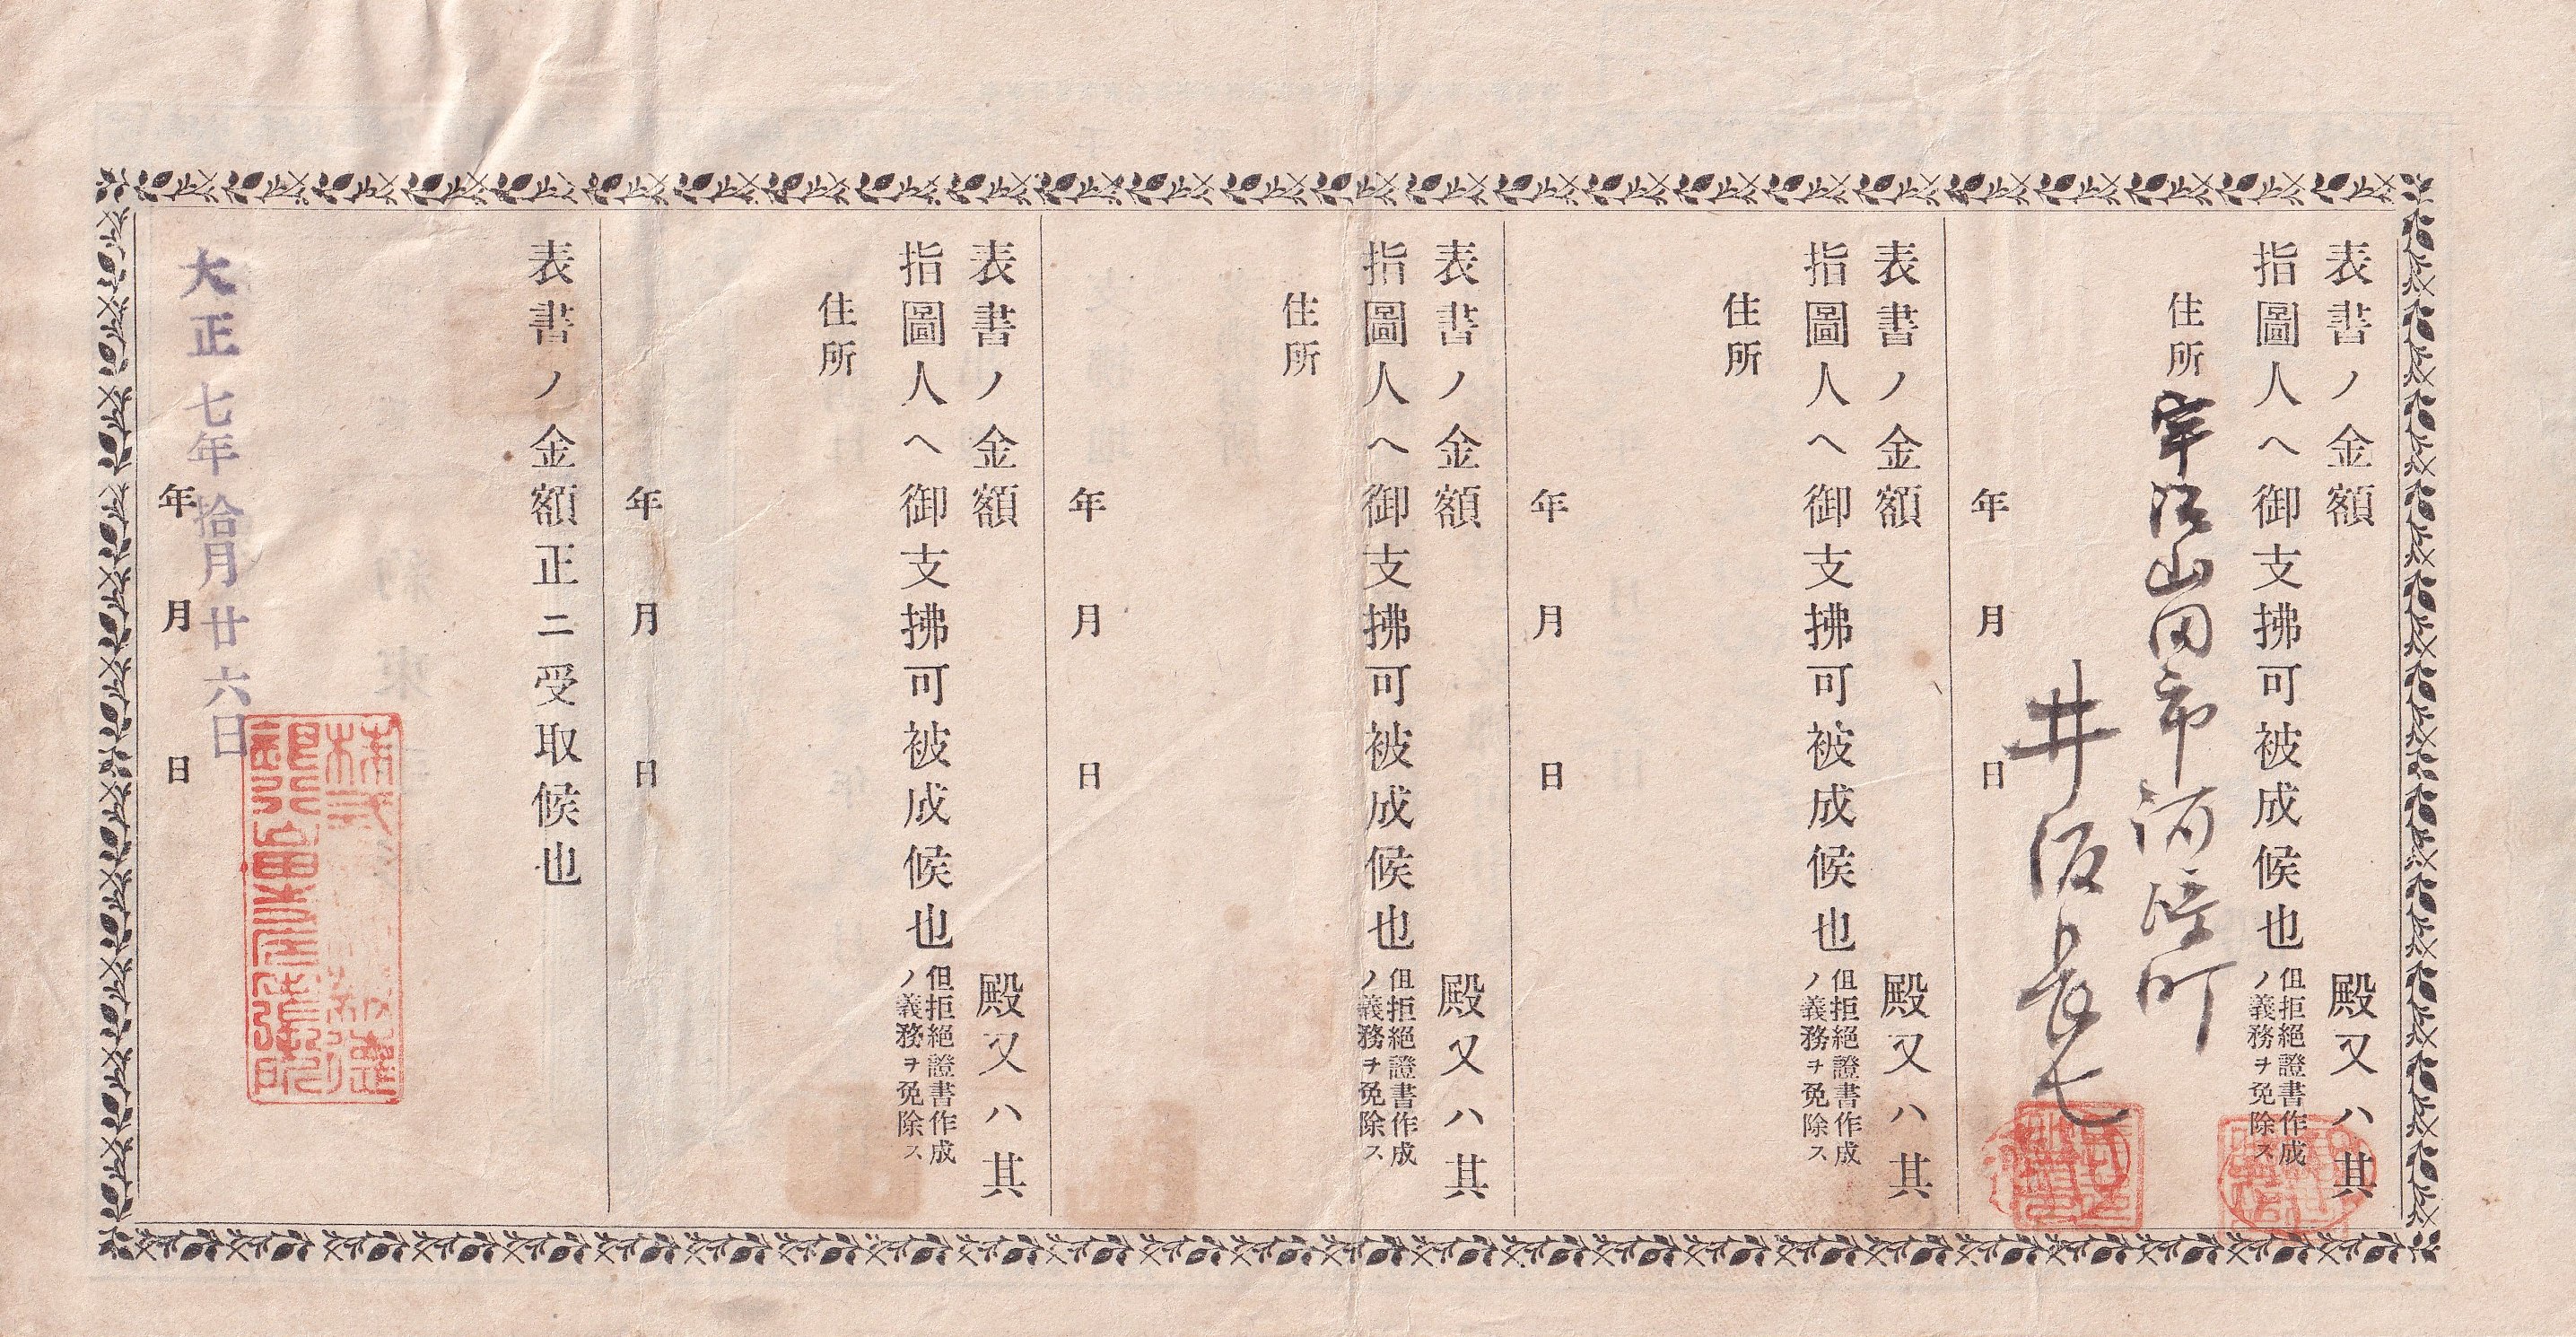 表書ノ金額　殿又ハ其
指圖人ヘ御支拂可被成候也
但拒絕證書作成
ノ義務ヲ免除ス
住所　宇治山田市河﨑町
井阪長七
年　月　日
表書ノ金額　殿又ハ其
指圖人ヘ御支拂可被成候也
但拒絕證書作成
ノ義務ヲ免除ス
住所
年　月　日
表書ノ金額　殿又ハ其
指圖人ヘ御支拂可被成候也
但拒絕證書作成
ノ義務ヲ免除ス
住所
年　月　日
表書ノ金額　殿又ハ其
指圖人ヘ御支拂可被成候也
但拒絕證書作成
ノ義務ヲ免除ス
住所
年　月　日
表書ノ金額正ニ受取候也
大正七年拾月廿六日
年　月　日